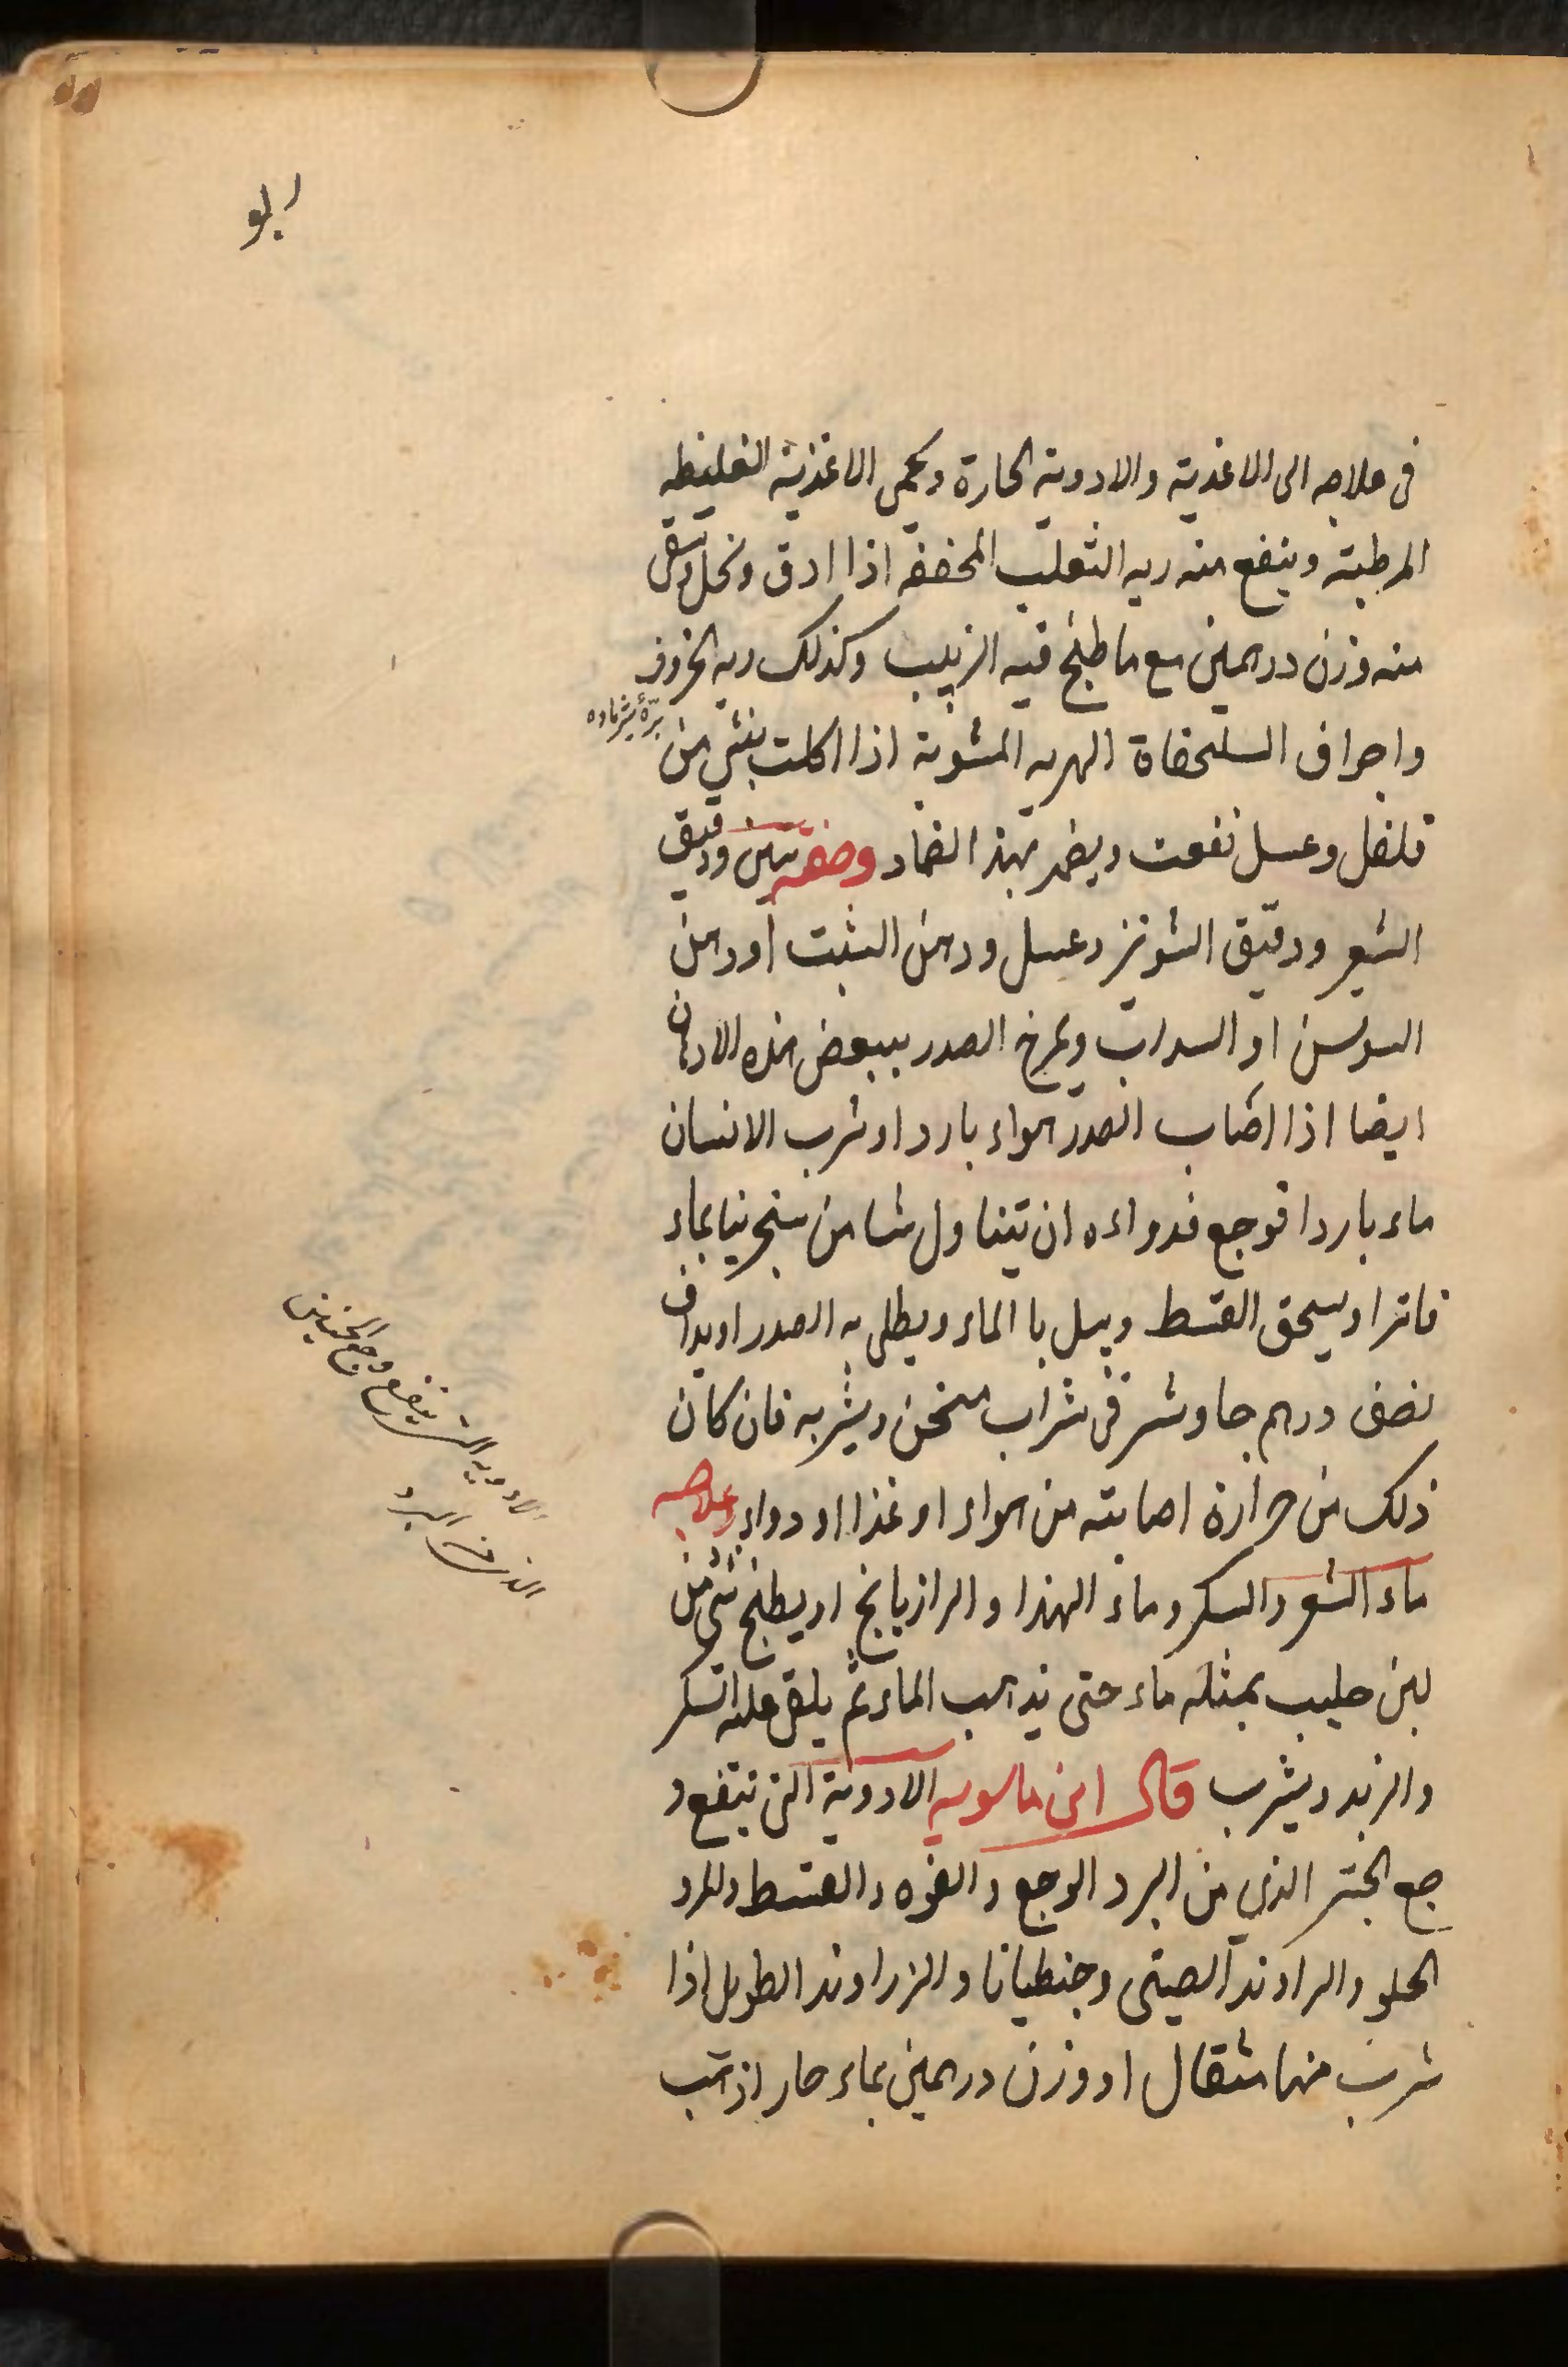 ابو
فى علاجه الى الاغذية والادوية الحارة ويحمى الاغذية الغليظه
المرطبة وينفع منه ريه الثعلب المخففه اذا ادق ونخل وسقى
منه وزن درهمين مع ما طبخ فيه الزبيب وكذلك ريه الخروف
واجراف السلحفاة النهريه المشوية اذا اكلت بشى من
فلفل وعسل نفعت ويضمد بهذا الضماد وصفه تين ودقيق
الشعير ودقيق الشونيز وعسل ودهن الشبت اودهن
السوسن او السداب ويمرخ الصدر ببعض هذه الادهان
ايضا اذا اصاب الصدر هواء بارد او شرب الانسان
ماء باردا فوجع فدواءه ان يتناول شيا من سنجرينا بماء
فاتر او يسحق القسط ويبل با الماء ويطلى به الصدر او يداف
نصف درهم جاوشير فى شراب مسخن ويشربه فان كان
ذلك من حرارة اصابته من هواء او غذا او دواء وعلاجه
ماء الشعير والسكر وماء الهندا والرازيانج او يطبخ شى من
لبن حليب بمثله ماء حتى يذهب الماء ثم يلقى عليه السكر
والزبد ويشرب قال ابن ماسويه الادوية التى ينتفع و
جع الجنب الذي من البرد الوج والفوه والقسط والمر
الحلو والراوند الصينى وجنطيانا والزراوند الطويل اذا
شرب منها مثقال او وزن درهمين بماء حار اذهب
الادويه التى ينفع وجع الجنبين
الذى من البرد